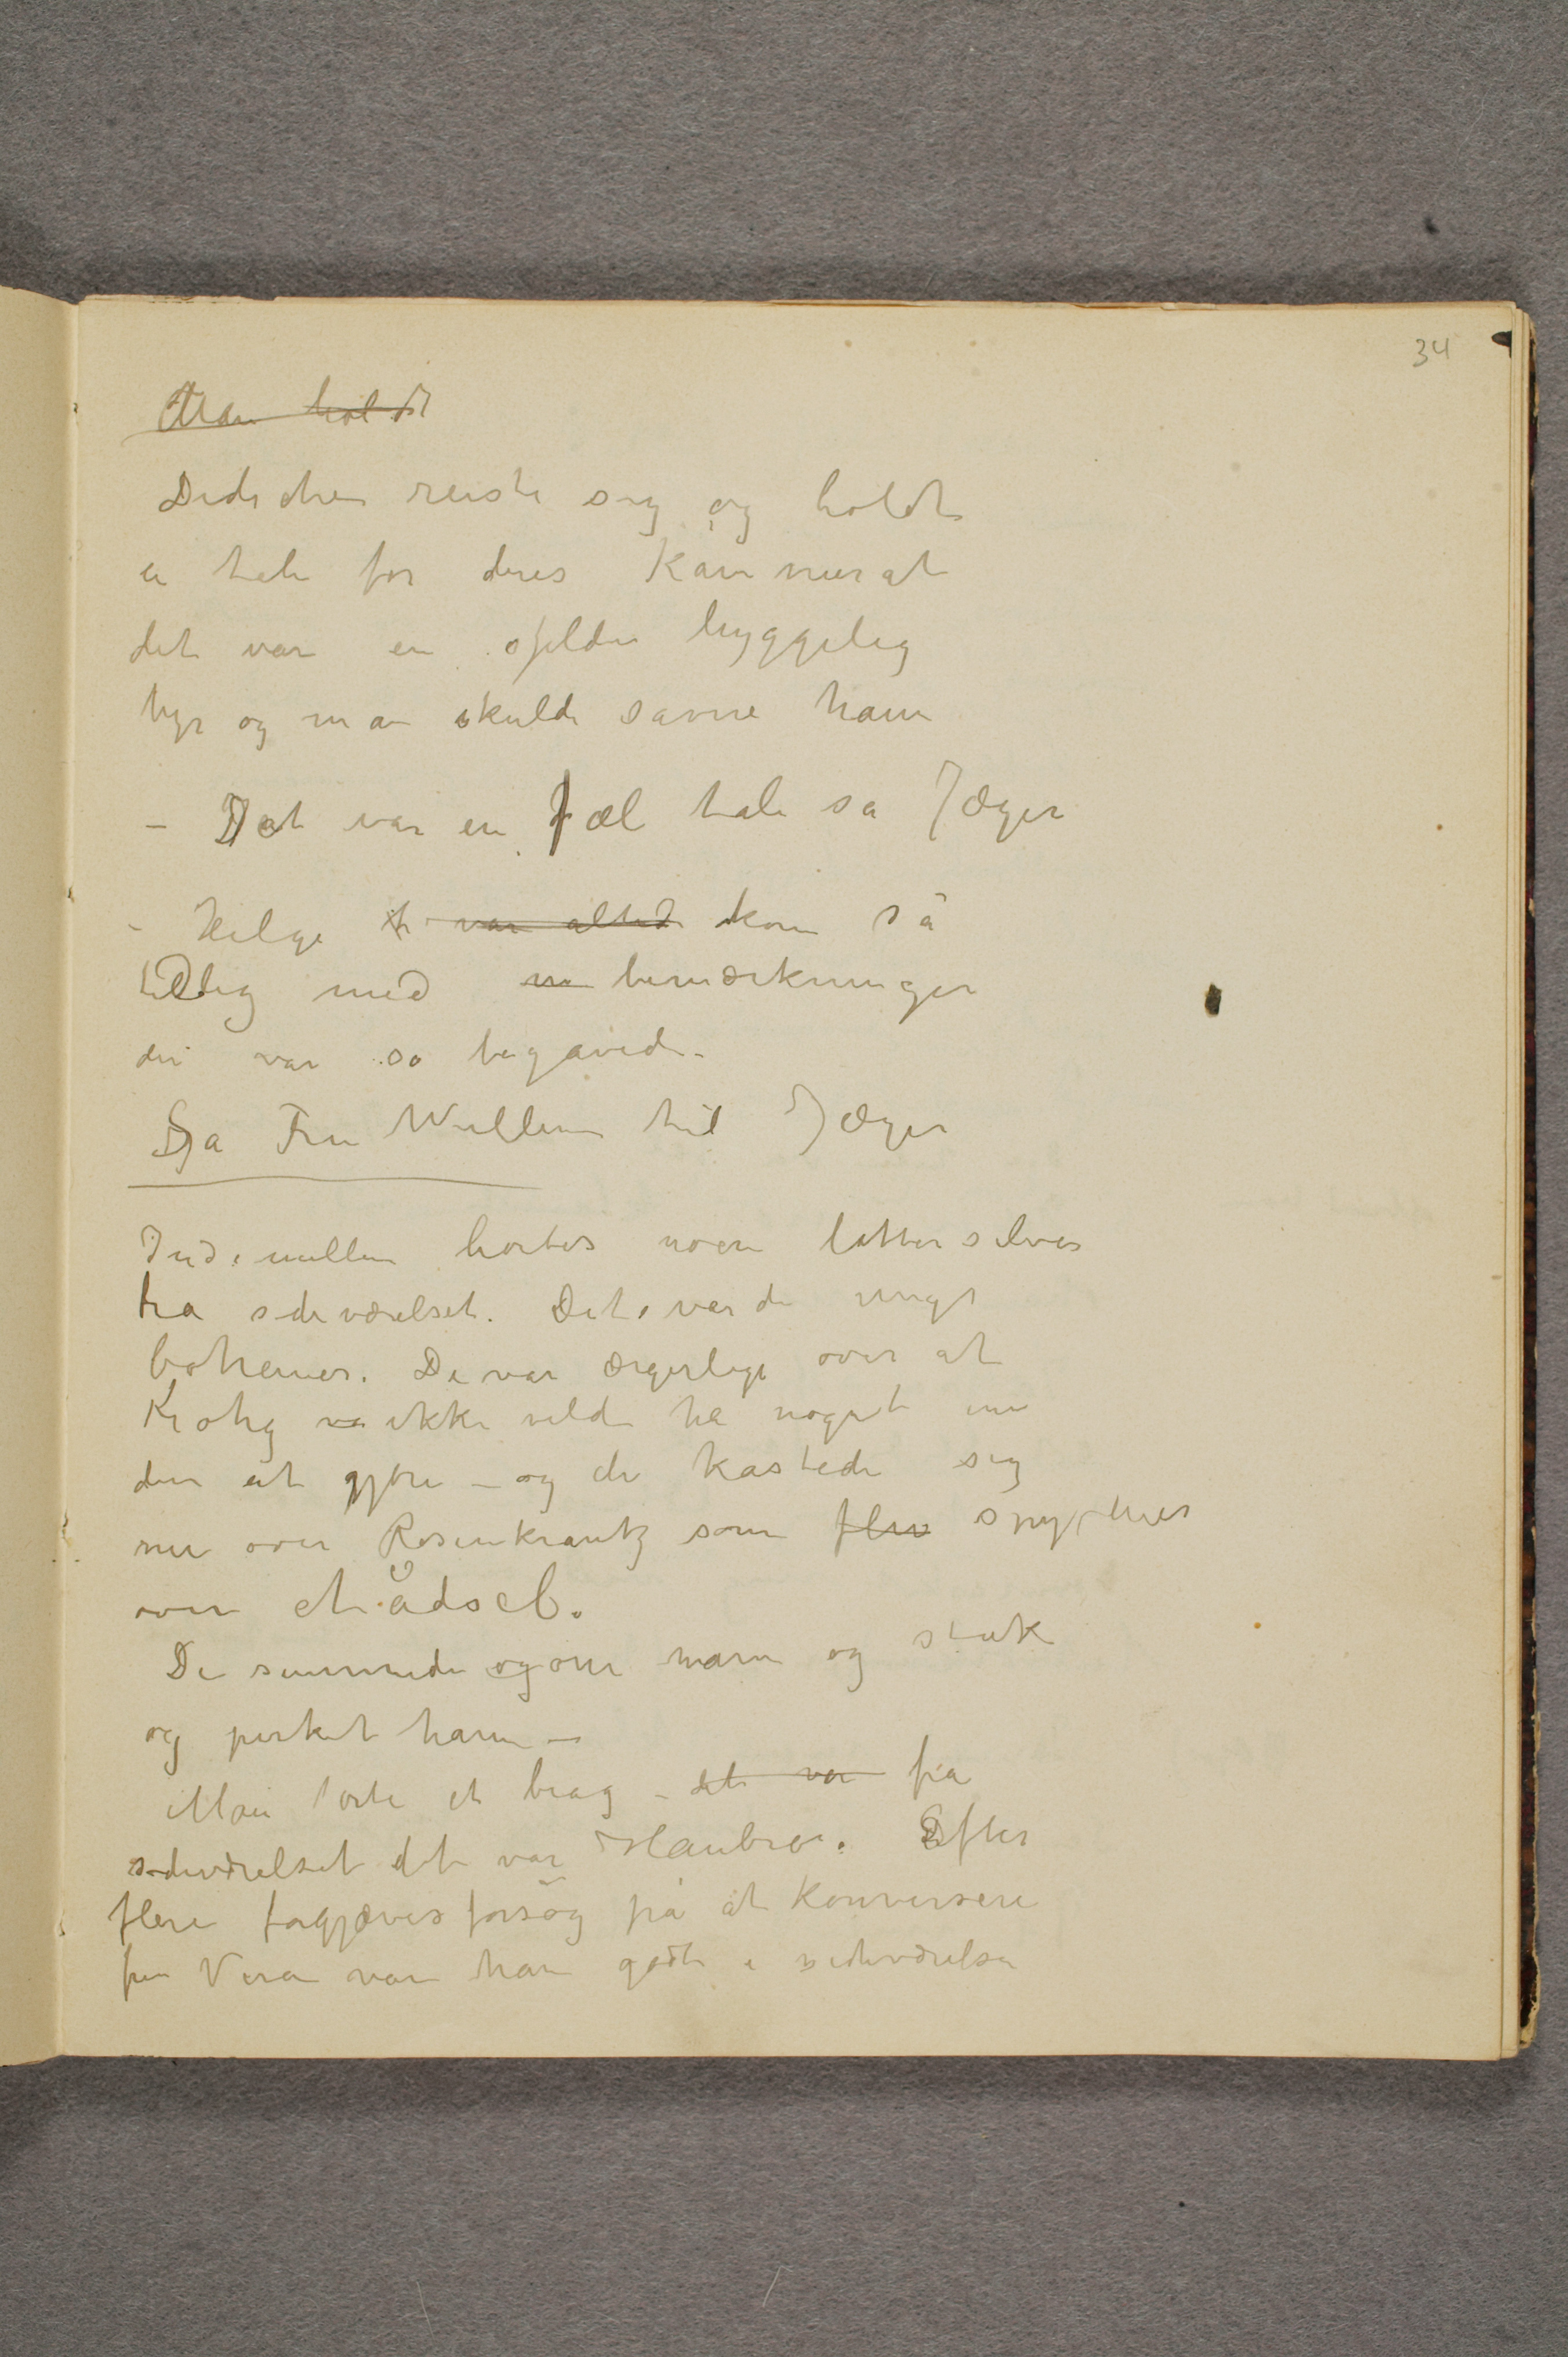 34
Man holdt
Dedichen reiste sig og holdt
en tale for deres Kammerat
det var en sjelden hyggelig
fyr og man skulde savne ham
– Det var en fæl tale sa Jæger
– Helge var altid kom så
tidlig med bemærkninger
der var så begavede.
Sa Fru Wullum til Jæger
Indimellem hørtes noen lattersalver
fra sideværelset. Det var de unge
bohemer. De var ærgerlige over at
Krohg va ikke vilde ha noget med
dem at gjøre – og de kastede sig
nu over Rosenkrantz som fluer spyfluer
over et ådsel.
De summede og om ham og stak
og pirket ham –
Man hørte et brag – det var fra
sideværelset det var Hambro. Efter
flere forgjæves forsøg på at Konversere
fru Vera var han gåt i sideværelse